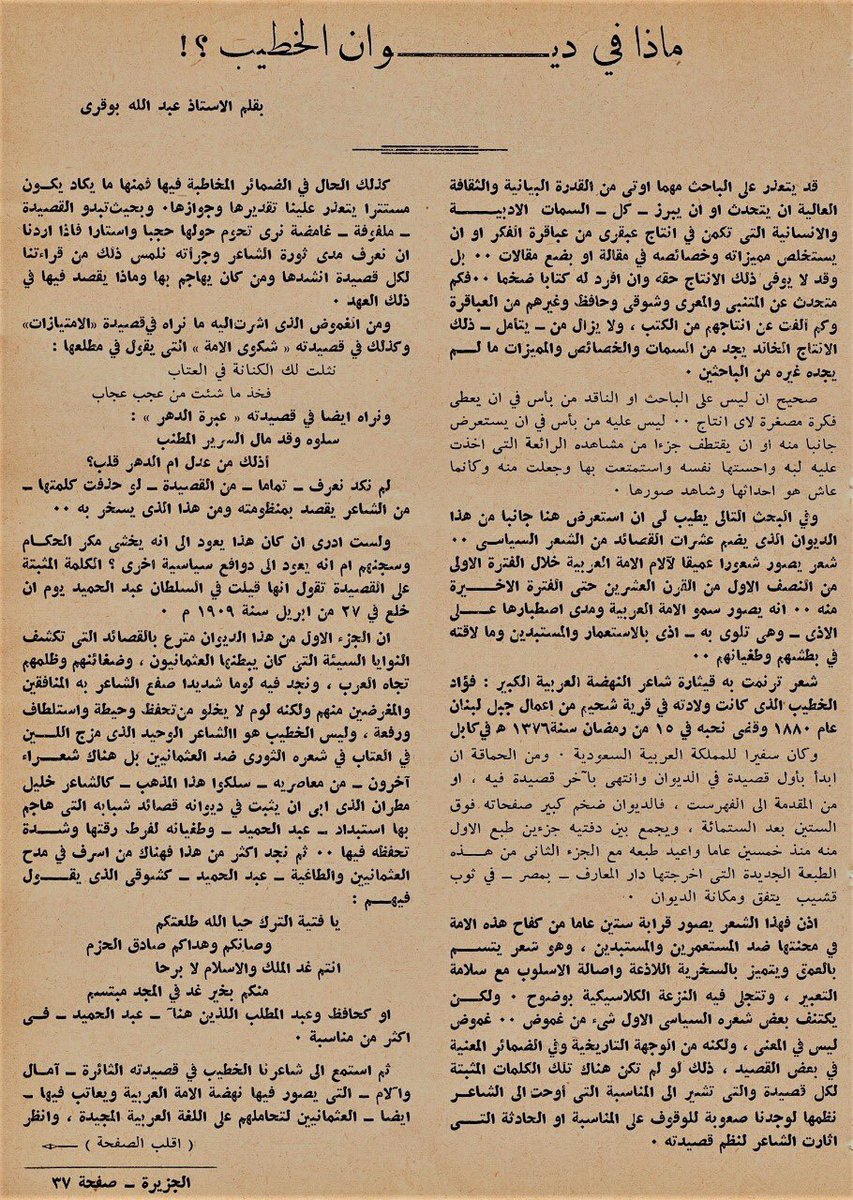 ماذا في ديـــــــوان الخطيب ؟!
بقلم الاستاذ عبد الله بوقرى
قد يتعذر على الباحث مهما اوتى من القدرة البيانية والثقافة
العالية ان يتحدث او ان يبرز ـ كل ـ السمات الادبيـــة
والانسانية التى تكمن في انتاج عبقرى من عباقرة الفكر او ان
يستخلص مميزاته وخصائصه في مقالة او بضع مقالات ٠٠ بل
وقد لا يوفى ذلك الانتاج حقه وان افرد له كتابا ضخما ٠٠فكم
متحدث عن المتنبى والمعرى وشوقى وحافظ وغيرهم من العباقرة
وكم الفت عن انتاجهم من الكتب ، ولا يزال من ـ يتأمل ـ ذلك
الانتاج الخالد يجد من السمات والخصائص والمميزات ما لــم
يجده غيره من الباحثين ٠
صحيح ان ليس على الباحث او الناقد من بأس في ان يعطى
فكرة مصغرة لاى انتاج ٠٠ ليس عليه من بأس في ان يستعرض
جانبا منه او ان يقتطف جزءا من مشاهده الرائعة التى اخذت
عليه لبه واحستها نفسه واستمتعت بها وجعلت منه وكأنما
عاش هو احداثها وشاهد صورها ٠
وفي البحث التالى يطيب لى ان استعرض هنا جانبا من هذا
الديوان الذى يضم عشرات القصائد من الشعر السياسى ٠٠
شعر يصور شعورا عميقا لآلام الامة العربية خلال الفترة الاولى
من النصف الاول من القرن العشرين حتى الفترة الاخيــرة
منه ٠٠ انه يصور سمو الامة العربية ومدى اصطبارها علــى
الاذى ـ وهى تلوى به ـ اذى بالاستعمار والمستبدين وما لاقته
في بطشهم وطغيانهم ٠٠
شعر ترنمت به قيثارة شاعر النهضة العربية الكبير : فؤاد
الخطيب الذى كانت ولادته في قرية شحيم من اعمال جبل لبنان
عام ١٨٨٠ وقضى نحبه في ١٥ من رمضان سنة١٣٧٦ هـ في كابل
وكان سفيرا للمملكة العربية السعودية ٠ ومن الحماقة ان
ابدأ بأول قصيدة في الديوان وانتهى بآخر قصيدة فيه ، او
من المقدمة الى الفهرست ، فالديوان ضخم كبير صفحاته فوق
الستين بعد الستمائة ، ويجمع بين دفتيه جزءين طبع الاول
منه منذ خمسين عاما واعيد طبعه مع الجزء الثانى من هـــذه
الطبعة الجديدة التى اخرجتها دار المعارف ـ بمصر ـ في ثوب
قشيب يتفق ومكانة الديوان ٠
اذن فهذا الشعر يصور قرابة ستين عاما من كفاح هذه الامة
في محنتها ضد المستعمرين والمستبدين ، وهو شعر يتســم
بالعمق ويتميز بالسخرية اللاذعة واصالة الاسلوب مع سلامة
التعبير ، وتتجلى فيه النزعة الكلاسيكية بوضوح ٠ ولكــن
يكتنف بعض شعره السياسى الاول شىء من غموض ٠٠ غموض
ليس في المعنى ، ولكنه من الوجهة التاريخية وفي الضمائر المعنية
في بعض القصيد ، ذلك لو لم تكن هناك تلك الكلمات المثبتة
لكل قصيدة والتى تشير الى المناسبة التى أوحت الى الشاعـر
نظمها لوجدنا صعوبة للوقوف على المناسبة او الحادثة التــى
اثارت الشاعر لنظم قصيدته ٠
كذلك الحال في الضمائر المخاطبة فيها فمنها ما يكاد يكــون
مستترا يتعذر علينا تقديرها وجوازها٠ وبحيث تبدو القصيدة
ـ ملفوفة ـ غامضة نرى تحوم حولها حجبا واستارا فاذا اردنا
ان نعرف مدى ثورة الشاعر وجرأته نلمس ذلك من قراءتنا
لكل قصيدة انشدها ومن كان يهاجم بها وماذا يقصد فيها في
ذلك العهد ٠
ومن الغموض الذى اشرت اليه ما نراه في قصيدة «الامتيازات»
وكذلك في قصيدته « شكوى الامة » التى يقول في مطلعها :
نثلت لك الكنانة في العتاب
فخذ ما شئت من عجب عجاب
ونراه ايضا في قصيدته « عبرة الدهر » :
سلوه وقد مال السرير المطنب
أذلك من عدل ام الدهر قلب؟
لم نكد نعرف ـ تماما ـ من القصيدة ـ لو حذفت كلمتها ـ
من الشاعر يقصد بمنظومته ومن هذا الذى يسخر به ٠٠
ولست ادرى ان كان هذا يعود الى انه يخشى مكر الحكــام
وسجنهم ام انه يعود الى دوافع سياسية اخرى ؟ الكلمة المثبتة
على القصيدة تقول انها قيلت في السلطان عبد الحميد يوم ان
خلع في ٢٧ من ابريل سنة ١٩٠٩ م ٠
ان الجزء الاول من هذا الديوان مترع بالقصائد التى تكشف
النوايا السيئة التى كان يبطنها العثمانيون ، وضغائنهم وظلمهم
تجاه العرب ، ونجد فيه لوما شديدا صفع الشاعر به المنافقين
والمغرضين منهم ولكنه لوم لا يخلو من تحفظ وحيطة واستلطاف
ورفعة ، وليس الخطيب هو االشاعر الوحيد الذى مزج الليــن
في العتاب في شعره الثورى ضد العثمانيين بل هناك شعــراء
آخرون ـ من معاصريه ـ سلكوا هذا المذهب ـ كالشاعر خليل
مطران الذى ابى ان يثبت في ديوانه قصائد شبابه التى هاجم
بها استبداد ـ عبد الحميد ـ وطغيانه لفرط رقتها وشــدة
تحفظه فيها ٠٠ ثم نجد اكثر من هذا فهناك من اسرف في مدح
العثمانيين والطاغية ـ عبد الحميد ـ كشوقى الذى يقــول
فيهــم :
يا فتية الترك حيا الله طلعتكم
وصانكم وهداكم صادق الحزم
انتم غد الملك والاسلام لا برحا
منكم بخير غد في المجد مبتسم
او كحافظ وعبد المطلب اللذين هنآ ـ عبد الحميد ـ فــى
اكثر من مناسبة ٠
ثم استمع الى شاعرنا الخطيب في قصيدته الثائرة ـ آمــال
وآلام ـ التى يصور فيها نهضة الامة العربية ويعاتب فيها ـ
ايضا ـ العثمانيين لتحاملهم على اللغة العربية المجيدة ، وانظر
( اقلب الصفحة )
الجزيرة ـ صفحة ٣٧